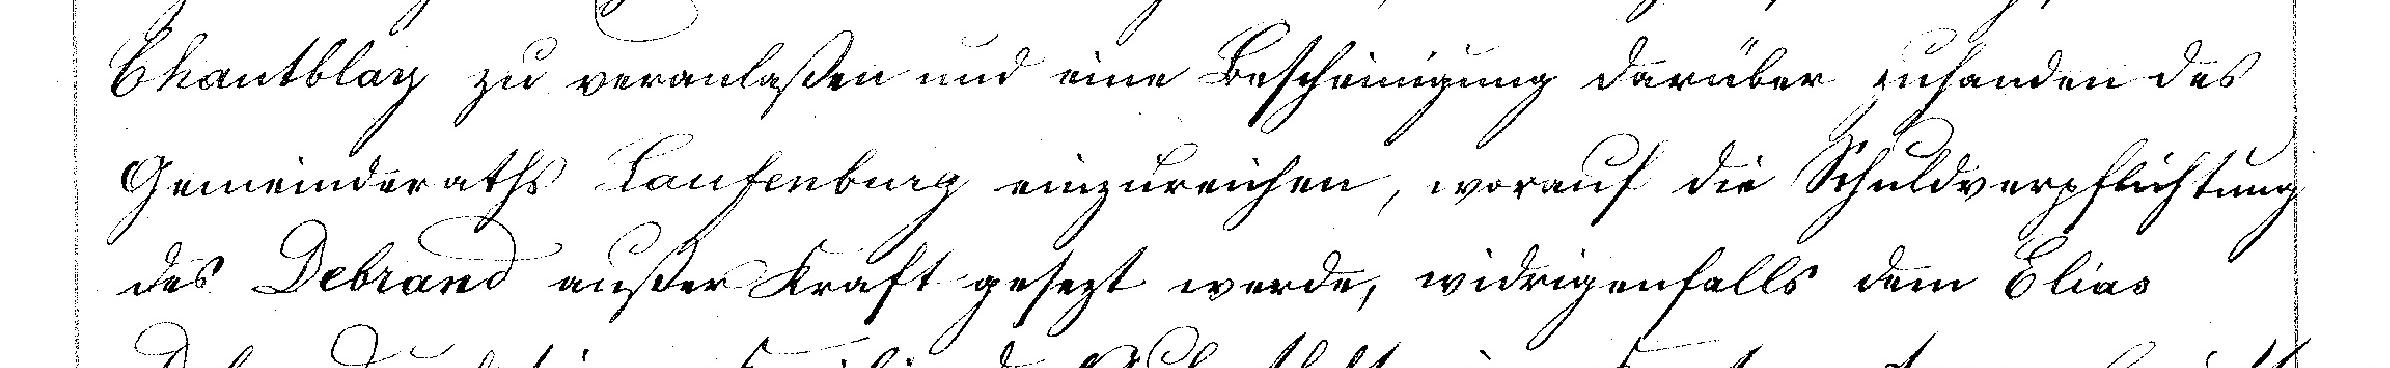 Chantblay zu veranlaßen und eine Bescheinigung darüber zuhanden des
Gemeinderaths Laufenburg einzureichen, worauf die Schuldverpflichtung
des Debrand außer Kraft gesezt werde, widrigenfalls dem Elias